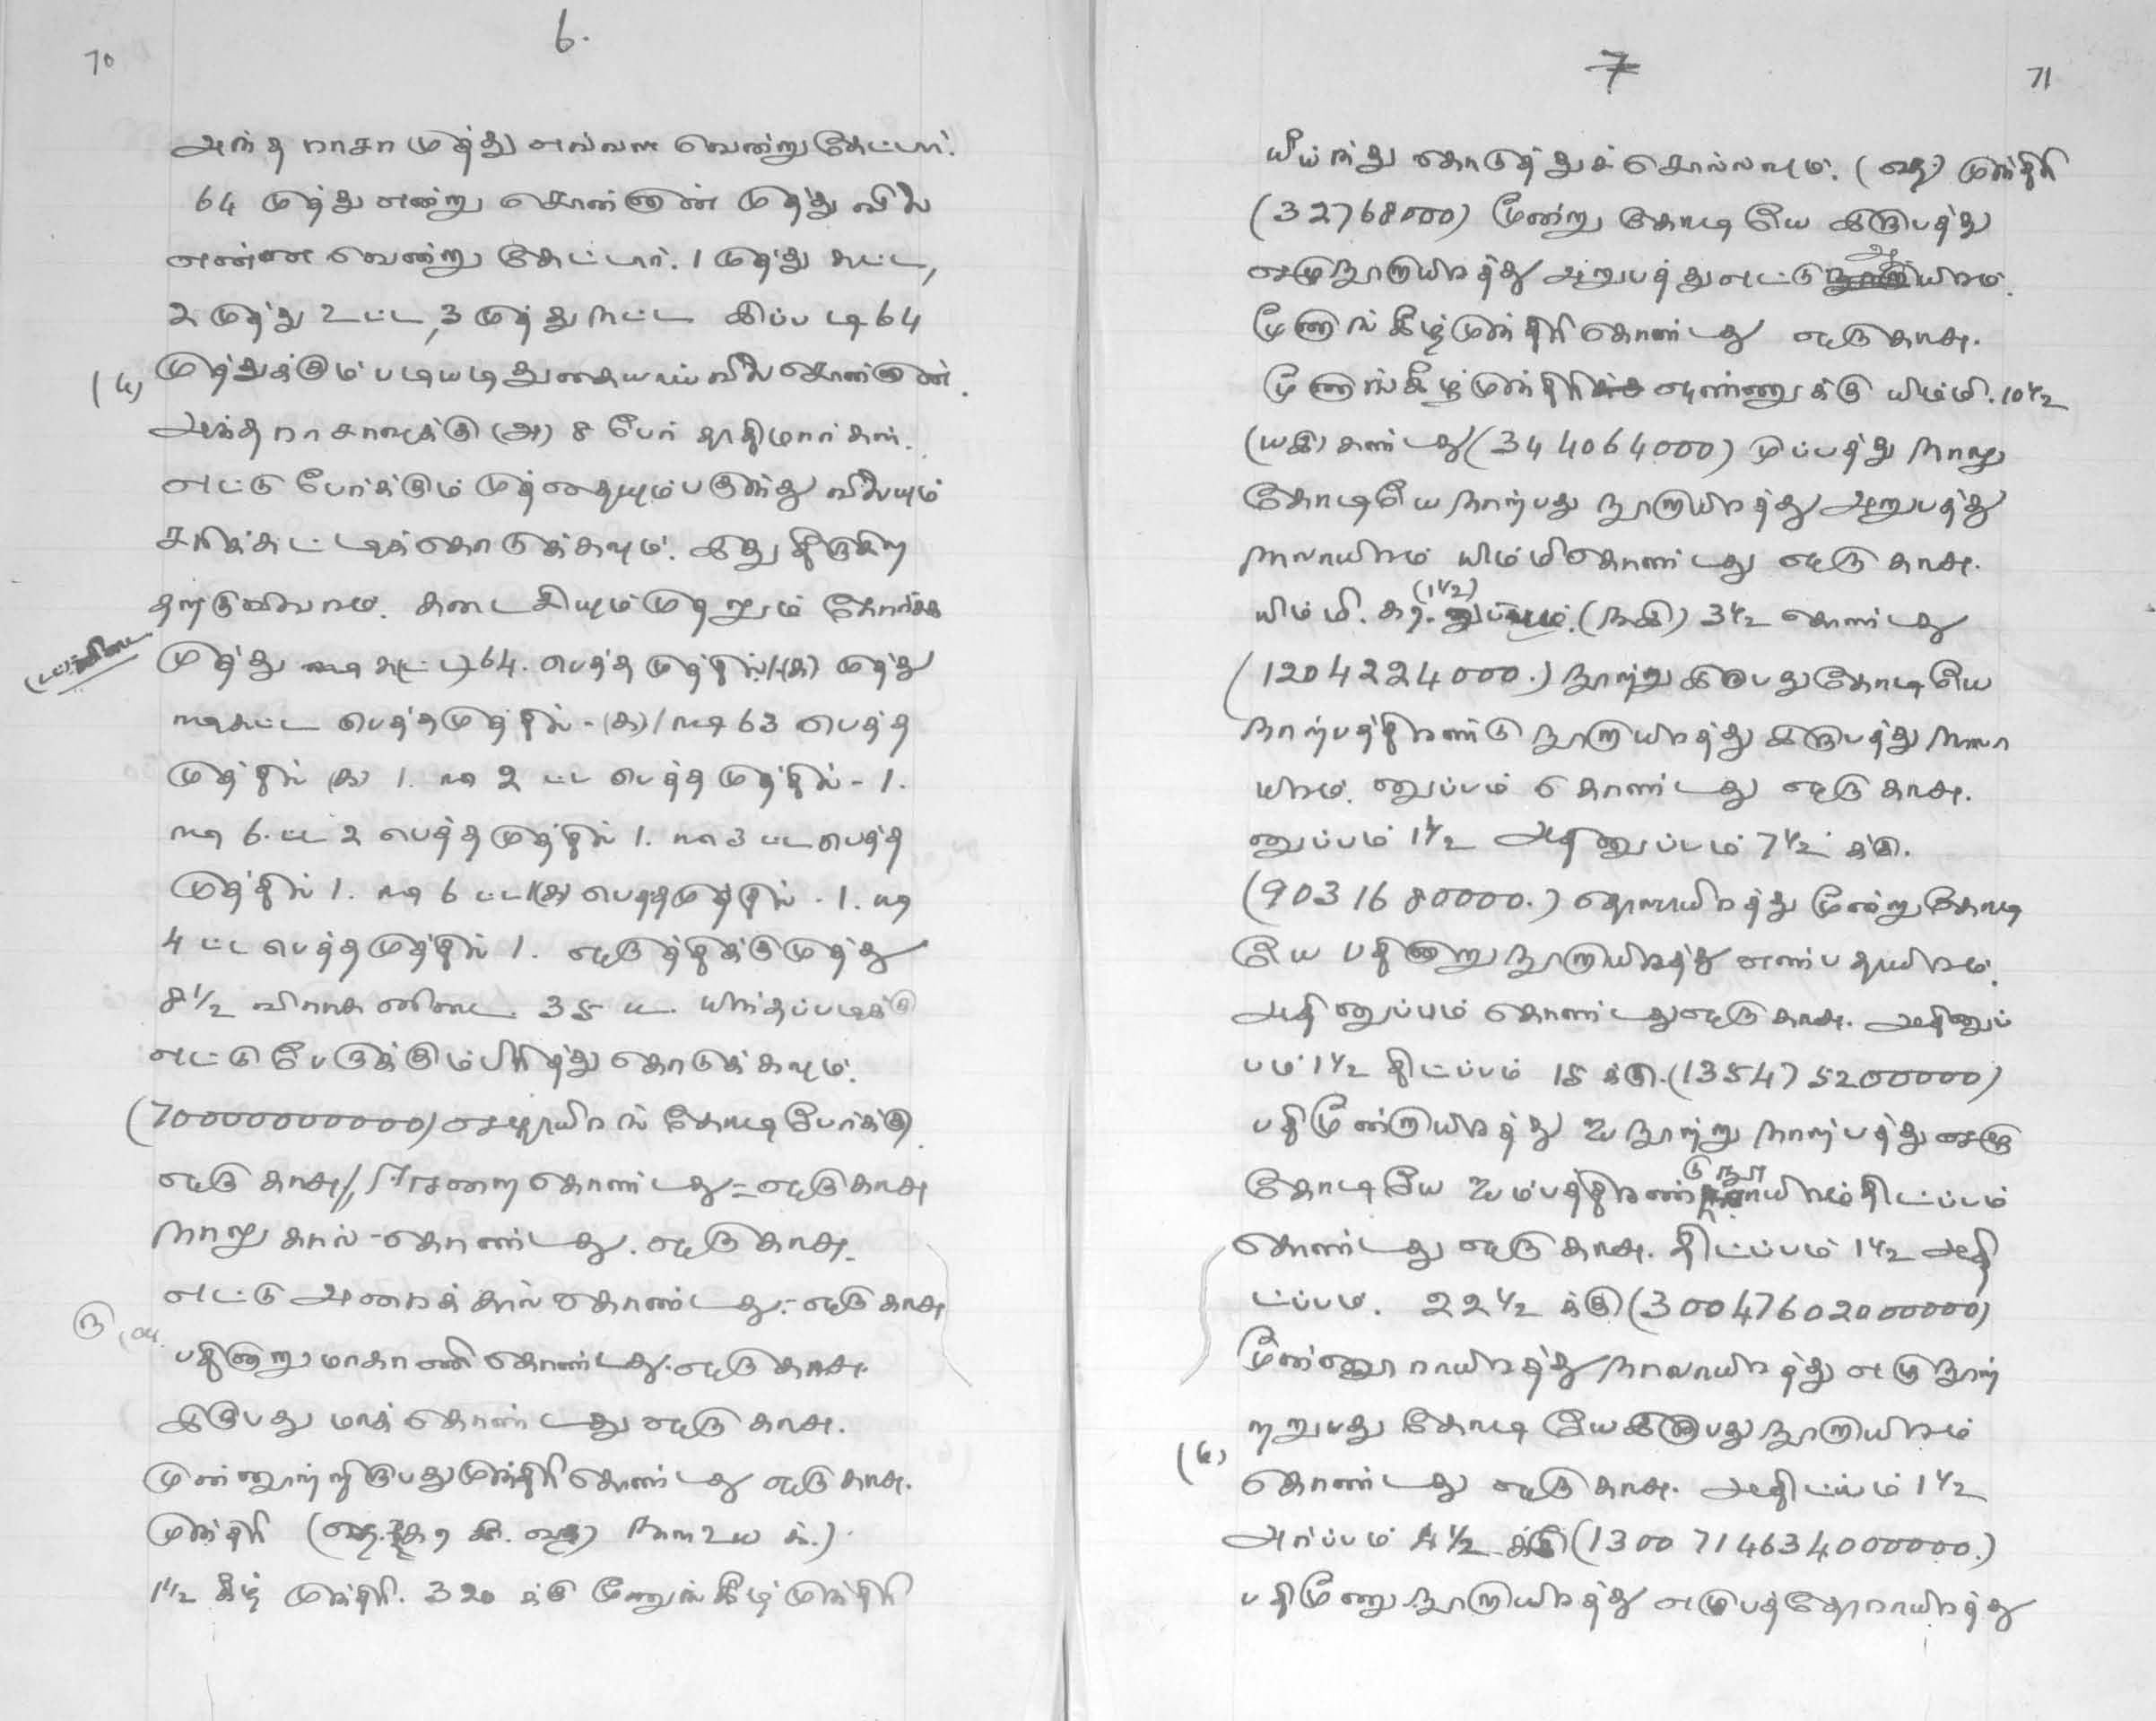 6.
70
அந்த ராசா முத்து எவ்வள வென்று கேட்டார்.
64 முத்து என்று சொன்னான் முத்து விலை
என்ன வென்று கேட்டார். 1 முத்து கட்ட,
2 முத்து உட்ட, 3 முத்து நட்ட இப்படி 64
முத்துக்கும் படியடி துகையாய் விலை சொன்னான்.
அந்த ராசாவுக்கு (அ) 8 பேர் தாதிமார்கள்.
எட்டு பேர்க்கும் முத்தையும் பகுந்து விலையும்
சரிக்கட்டிக் கொடுக்கவும். இது தீருகிற
தற்குவிவரம். கடைசியும் முதலும் கோர்க்க
முத்து கட்ட 64. பெத்த முத்தில் 1(க) முத்து
பெத்த முத்தில் - (க) 1 63 பெத்த
முத்தில் (க) 1. 2 ட்ட பெத்த முத்தில் - 1.
6. ட்ட 2 பெத்த முத்தில் 1. 3 ட்ட பெத்த
முத்தில் 1. 6 ட்ட 1(க) பெத்தமுத்தில் - 1.
4 ட்ட பெத்த முத்தில் 1. ஒருத்திக்கு முத்து
8 1/2 35 யிந்தப்படிக்கு
எட்டு பேருக்கும் பிரித்து கொடுக்கவும்.
(70000000000) ஏழாயிரங் கோடி பேர்க்கு
ஒரு காசு // கொண்டது = ஒரு காசு
நாலு கால் - கொண்டது. ஒரு காசு.
எட்டு அரைக் கால் கொண்டது - ஒரு காசு
பதினாறு மாகாணி கொண்டது. ஒரு காசு.
இருபது மாக் கொண்டது ஒரு காசு.
முன்னூற்றிருபது முந்திரி கொண்டது ஒரு காசு.
முந்திரி
1 1/2 கீழ் முந்திரி. 320 க்கு மூணுங் கீழ் முந்திரி
7
71
யீய்ந்து கொடுத்துச் சொல்லவும். முந்திரி
(32768000) மூண்று கோடியே இருபத்து
ஏழு நூறாயிரத்து அறுபத்து எட்டு ஆயிரம்.
மூணாங் கீழ் முந்திரி கொண்டது ஒரு காசு.
மூணாங் கீழ் முந்திரி ஒண்ணுக்கு யிம்மி. 10 1/2
கண்டது (344064000) முப்பத்து நாலு
கோடியே நாற்பது நூறாயிரத்து அறுபத்து
நாலாயிரம் யிம்மி கொண்டது ஒரு காசு.
யிம்மி. (1 1/2) 3 1/2 கொண்டது
(1204224000.) நூற்று இருபது கோடியே
நாற்பத்திரண்டு நூறாயிரத்து இருபத்து நாலா
யிரம். னுப்பம் கொண்டது ஒரு காசு.
னுப்பம் 1 1/2 அதி னுப்பம் 7 1/2 க்கு.
(9031680000.) தொளாயிரத்து மூன்று கோடி
யே பதினாறு நூறாயிரத்து எண்பதாயிரம்.
அதி னுப்பம் கொண்டது ஒரு காசு. அதினுப்
பம் 1 1/2 திட்ப்பம் 15 க்கு. (135475200000)
பதிமூன்றாயிரத்து ஐநூற்று நாற்பத்து ஏழு
கோடியே ஐம்பத்திரண்டு நூறாயிரம் திட்ப்பம்
கொண்டது ஒரு காசு. திட்ப்பம் 1 1/2 அதி
ட்ப்பம். 22 1/2 க்கு (3004760200000)
மூன்னூறாயிரத்து நாலாயிரத்து எழு நூற்
றறுபது கோடியே இருபது நூறாயிரம்
கொண்டது ஒரு காசு. அதிட்ப்பம் 1 1/2
அர்ப்பம் 4 1/2 க்கு (13007146340000000.)
பதிமூணு நூறாயிரத்து எழுபத்தோராயிரத்து